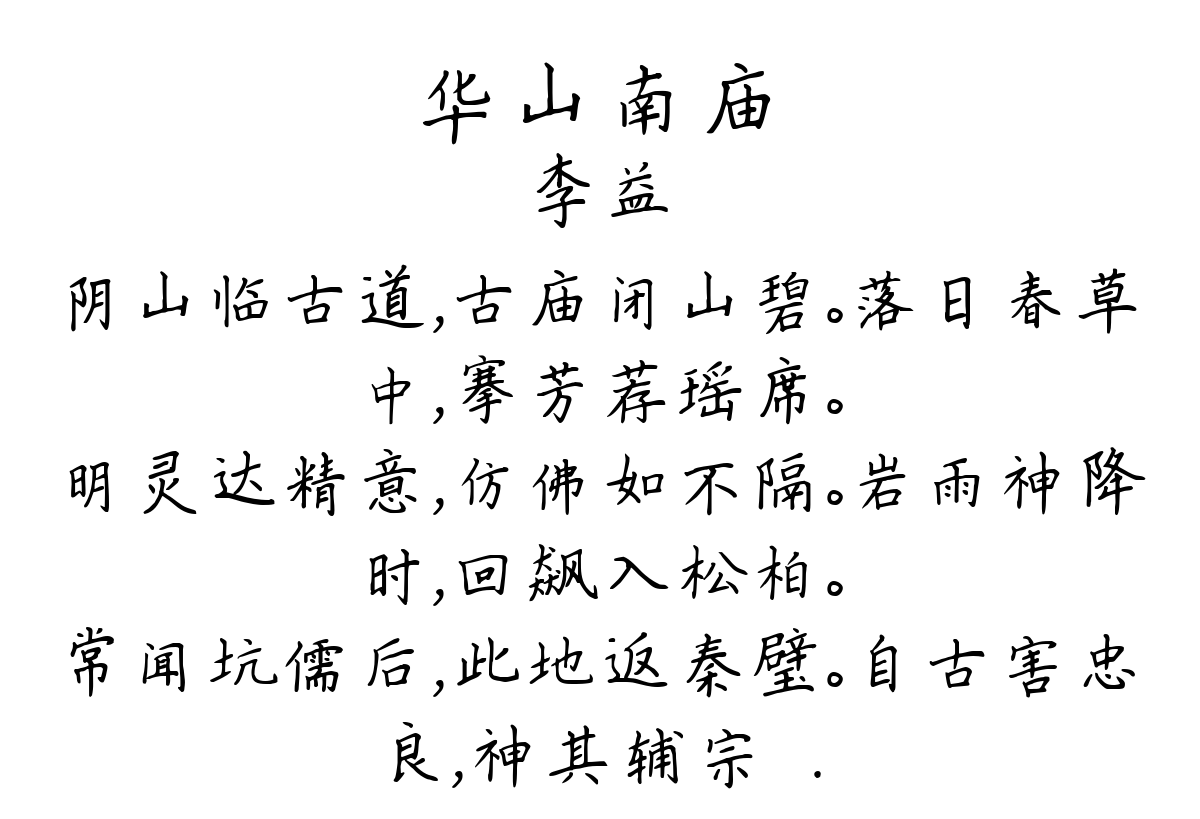 华山南庙
李益
阴山临古道,古庙闭山碧。落日春草
中,搴芳荐瑶席。
明灵达精意,仿佛如不隔。岩雨神降
时,回飙入松柏。
常闻坑儒后,此地返秦璧。自古害忠
良,神其辅宗 .